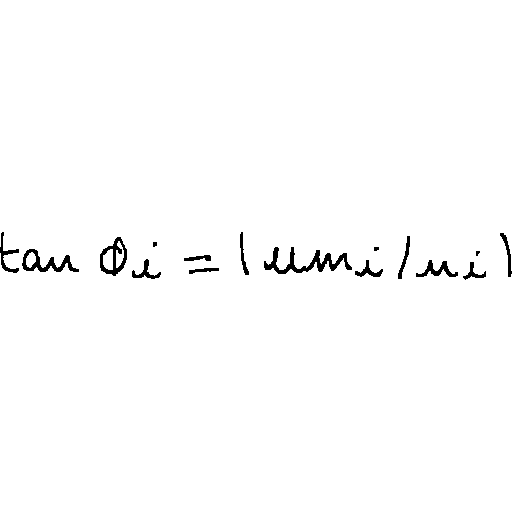 tan ϕi = | umi / ni |